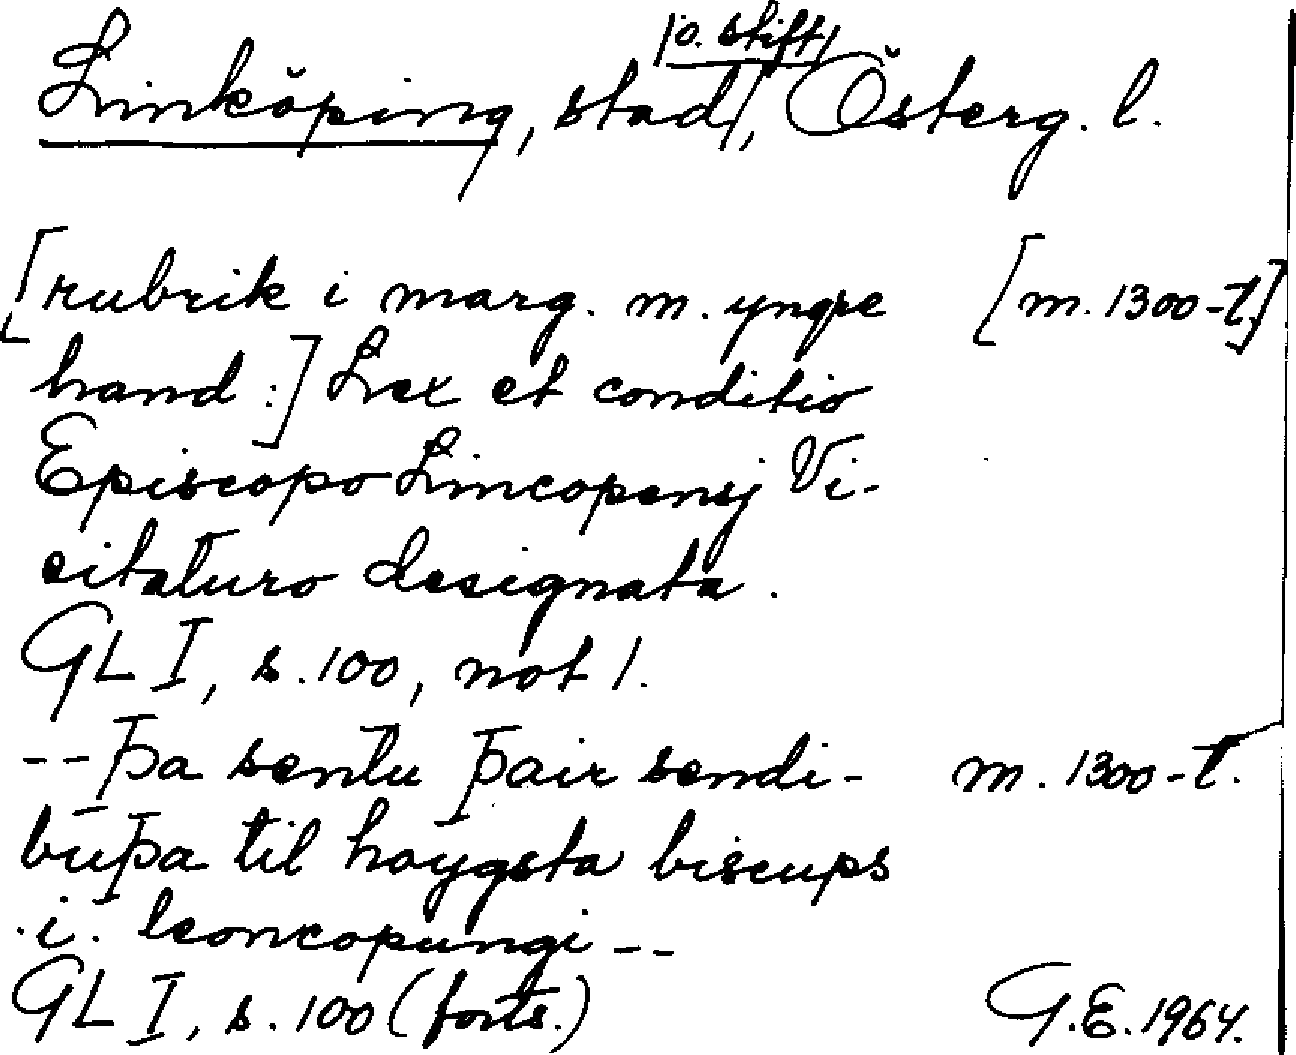 Linköping, stad /o. stift/, Österg. l.
[rubrik i marg. m. yngre [m. 1300-t.]
hand:] Lex et conditio
Episcopo Lincopensj Vi-
citaturo designata.
GL I, s. 100, not 1.
-- Þa sentu þair sendi- m. 1300-t.
buþa til hoygsta biscups
.i. leoncopungi --
GL I, s. 100 (forts.) G.E. 1964.